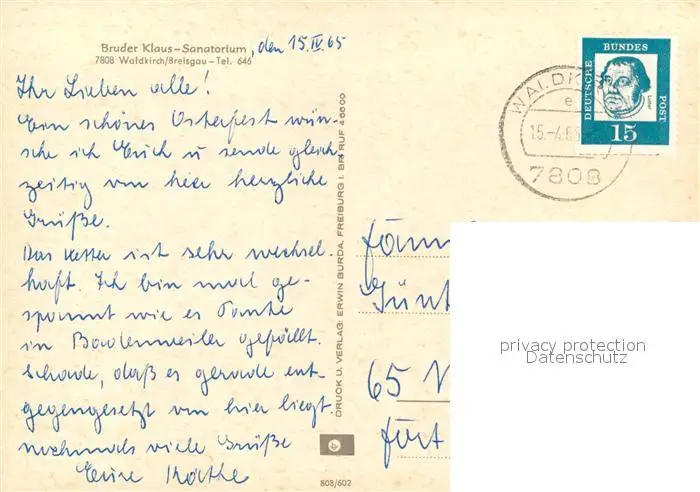 Bruder Klaus-Sanatorium, den 15.IV.65
7808 Waldkirch/Breisgau - Tel. 646
Ihr Lieben alle!
Ein schönes Osterfest wün-
sche ich Euch u sende gleich-
zeitig von hier herzliche
Grüße.
Das Wetter ist sehr wechsel-
haft. Ich bin mal ge-
spannt wie es Tante
in Badenweiler gefällt.
Schade, daß es gerade ent-
gegengesetzt von hier liegt.
nochmals viele Grüße
Eure Käthe
DRUCK U. VERLAG: ERWIN BURDA, FREIBURG I. BR. RUF 46600
808/602
DEUTSCHE
BUNDES
POST
15
WALDK
15.-4.65
7808
65
privacy protection
Datenschutz